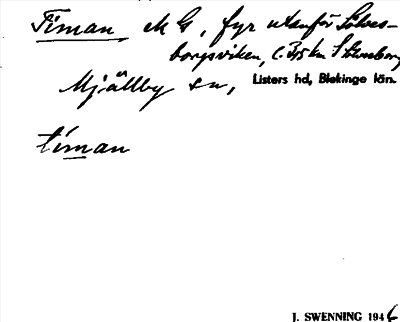 Timan M G, fyr utanför Sölves-
borgsviken, c. 3,5 km S Sölvesborg
Mjällby sn, Listers hd, Blekinge län.
tíman
J. SWENNING 1946